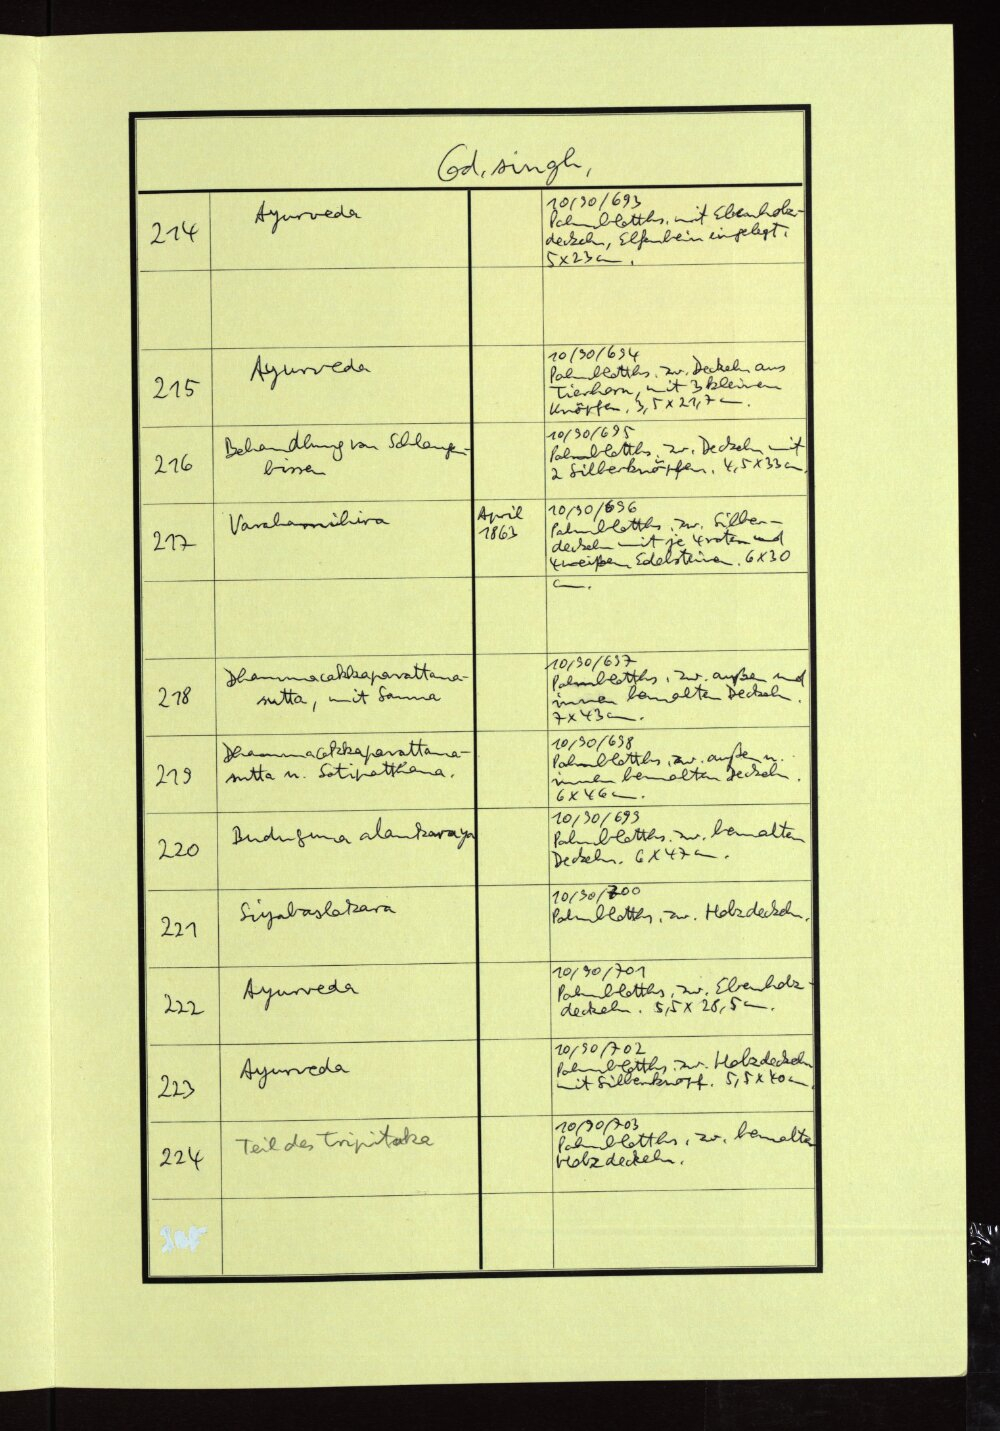 Cod. singh.
214
Ayurveda
10/90/693
Palmblatths. mit Ebenholz-
deckeln, Elfenbein eingelegt.
5x23cm.
215
Ayurveda
10/90/694
Palmblatths. zw. Deckeln aus
Tierhorn, mit 3 kleinen
Knöpfen. 3,5x21,7cm.
216
Behandlung von Schlangen-
bissen
10/90/695
Palmblatths. zw. Deckeln mit
2 Silberknöpfen. 4,5x33cm.
217
Varahamihira
April
1863
10/90/696
Palmblatths. zw. Silber-
deckeln mit je 4 roten und
4 weißen Edelsteinen. 6x30
cm.
218
Dhammacakkapavattana-
sutta, mit Sanna
10/90/697
Palmblatths. zw. außen und
innen bemalten Deckeln.
7x43cm.
219
Dhammacakkapavattana-
sutta u. Satipatthana.
10/90/698
Palmblatths. zw. außen u.
innen bemalten Deckeln.
6x46cm.
220
Buduguna alankaraya
10/90/699
Palmblatths. zw. bemalten
Deckeln. 6x47cm.
221
Siyabaslakara
10/90/700
Palmblatths. zw. Holzdeckeln.
222
Ayurveda
10/90/701
Palmblatths. zw. Ebenholz-
deckeln. 5,5x28,5cm.
223
Ayurveda
10/90/702
Palmblatths. zw. Holzdeckeln
mit Silberknopf. 5,5x40cm.
224
Teil des Tripitaka
10/90/703
Palmblatths. zw. bemalten
Holzdeckeln.